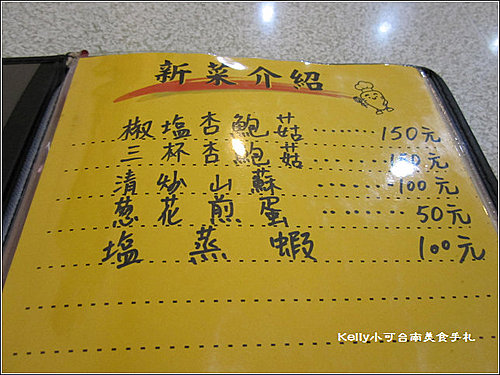 新菜介紹
椒塩杏鮑菇 ......... 150元
三杯杏鮑菇 ......... 150元
清炒山蘇 ......... 100元
蔥花煎蛋 ......... 50元
塩蒸蝦 100元
Kelly小可台南美食手札